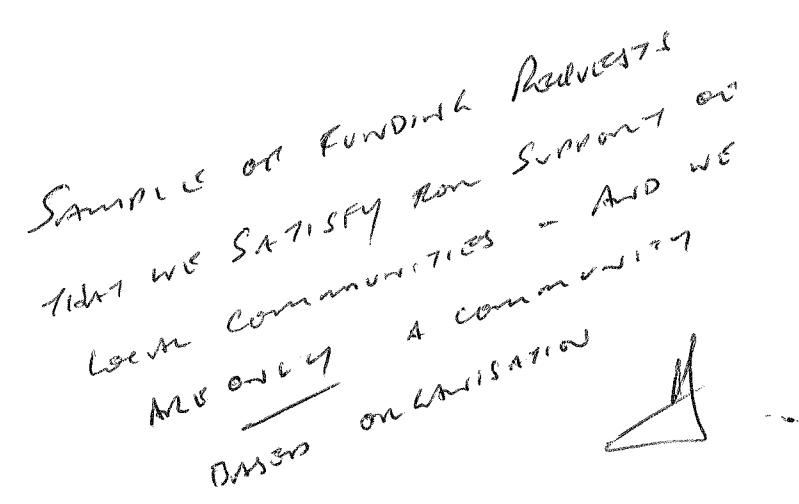 SAMPLE OF FUNDING REQUESTS
THAT WE SATISFY FOR SUPPORT OF
LOCAL COMMUNITIES - AND WE
ARE ONLY A COMMUNITY
BASED ORGANISATION